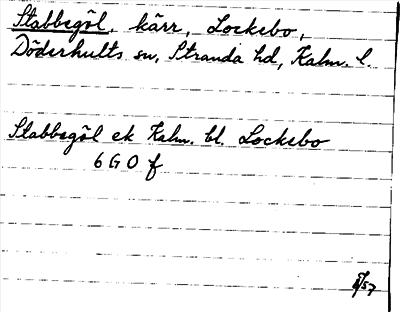 Stabbegöl, kärr, Lockebo,
Döderhults sn, Stranda hd, Kalm. l.
Stabbegöl ek Kalm. bl. Lockebo
6 G O f